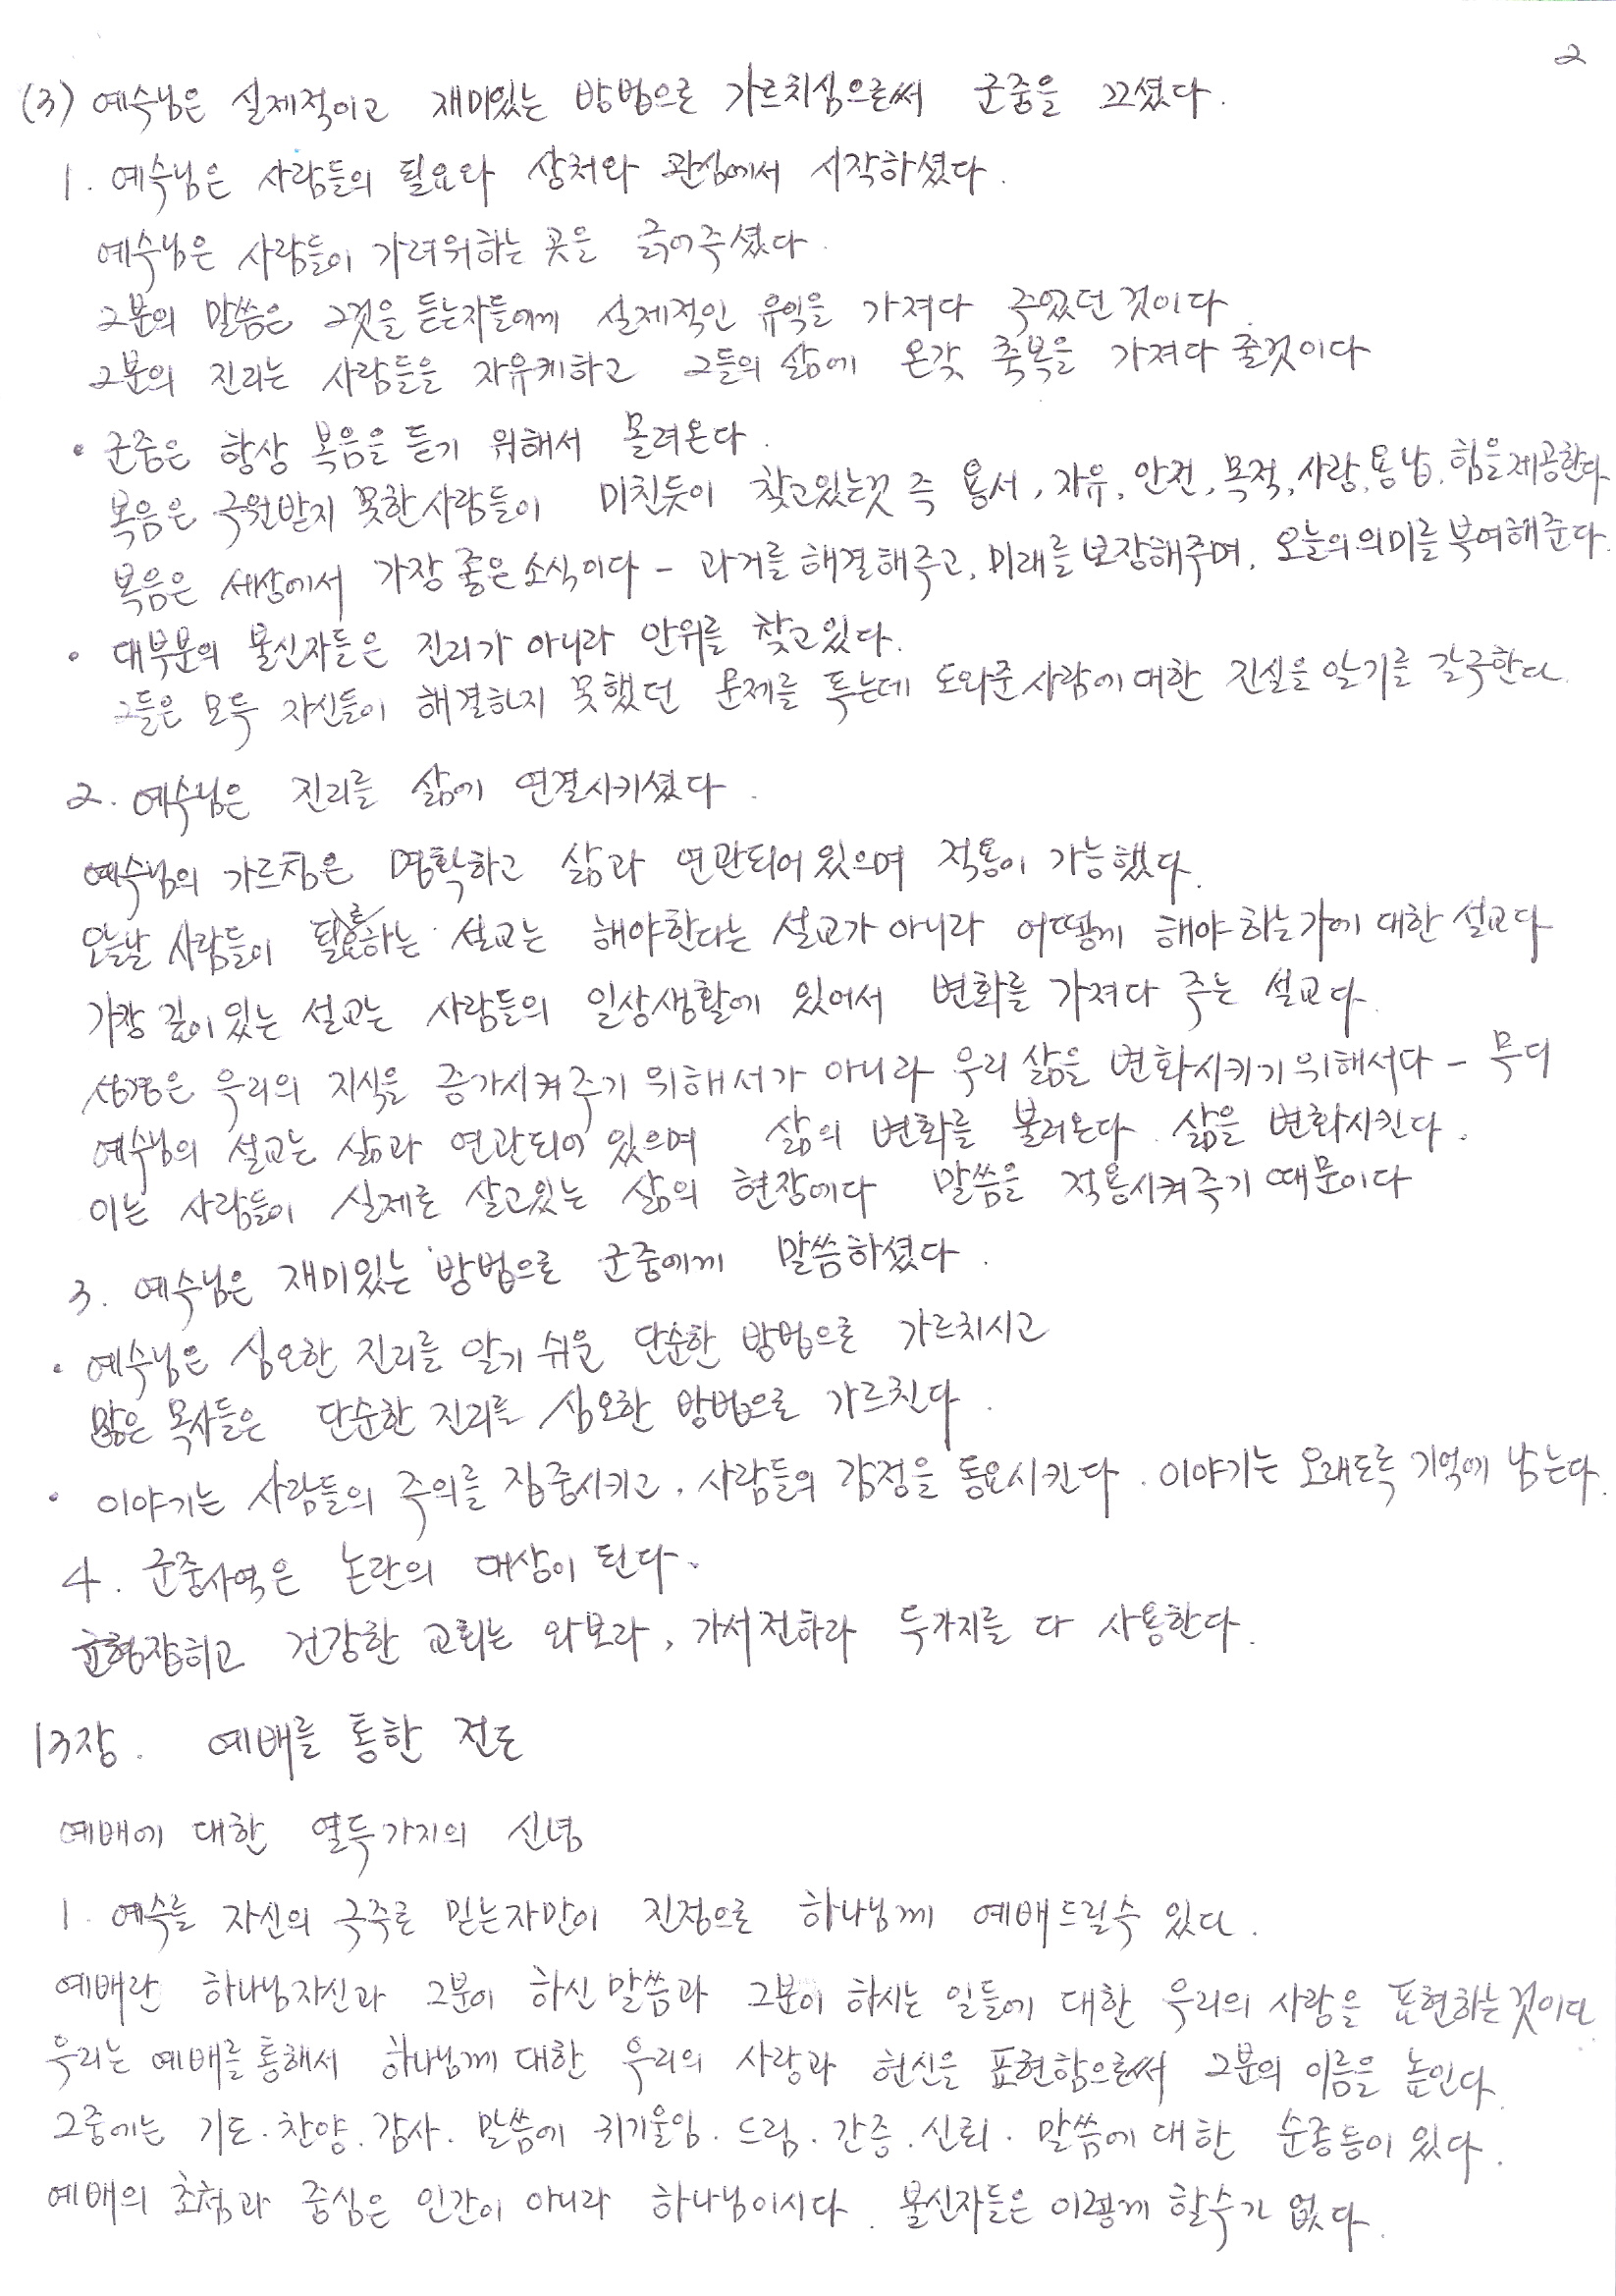 2
(3) 예수님은 실제적이고 재미있는 방법으로 가르치심으로써 군중을 끄셨다.
1. 예수님은 사람들의 필요와 상처와 관심에서 시작하셨다.
예수님은 사람들이 가려워하는 곳을 긁어주셨다.
그분의 말씀은 그것을 듣는자들에게 실제적인 유익을 가져다 주었던 것이다.
그분의 진리는 사람들을 자유케하고 그들의 삶에 온갖 축복을 가져다 줄것이다
• 군중은 항상 복음을 듣기 위해서 몰려온다.
복음은 구원받지 못한 사람들이 미친듯이 찾고있는것 즉 용서, 자유, 안전, 목적, 사랑, 용납, 힘을 제공한다
복음은 세상에서 가장 좋은 소식이다 - 과거를 해결해주고, 미래를 보장해주며, 오늘의 의미를 부여해준다.
• 대부분의 불신자들은 진리가 아니라 안위를 찾고있다.
그들은 모두 자신들이 해결하지 못했던 문제를 푸는데 도와준 사람에 대한 진실을 알기를 갈구한다.
2. 예수님은 진리를 삶에 연결시키셨다.
예수님의 가르침은 명확하고 삶과 연관되어 있으며 적용이 가능했다.
오늘날 사람들이 필요로하는 설교는 해야한다는 설교가 아니라 어떻게 해야 하는가에 대한 설교다
가장 깊이 있는 설교는 사람들의 일상생활에 있어서 변화를 가져다 주는 설교다.
성경은 우리의 지식을 증가시켜주기 위해서가 아니라 우리 삶을 변화시키기 위해서다 - 무디
예수님의 설교는 삶과 연관되어 있으며 삶의 변화를 불러온다. 삶을 변화시킨다.
이는 사람들이 실제로 살고있는 삶의 현장에다 말씀을 적용시켜주기 때문이다
3. 예수님은 재미있는 방법으로 군중에게 말씀하셨다.
• 예수님은 심오한 진리를 알기 쉬운 단순한 방법으로 가르치시고
많은 목사들은 단순한 진리를 심오한 방법으로 가르친다.
• 이야기는 사람들의 주의를 집중시키고, 사람들의 감정을 동요시킨다. 이야기는 오래도록 기억에 남는다.
4. 군중사역은 논란의 대상이 된다.
균형잡히고 건강한 교회는 와보라, 가서전하라 두가지를 다 사용한다.
13장. 예배를 통한 전도
예배에 대한 열두가지의 신념
1. 예수를 자신의 구주로 믿는자만이 진정으로 하나님께 예배드릴수 있다.
예배란 하나님자신과 그분이 하신 말씀과 그분이 하시는 일들에 대한 우리의 사랑을 표현하는것이다
우리는 예배를 통해서 하나님께 대한 우리의 사랑과 헌신을 표현함으로써 그분의 이름을 높인다.
그중에는 기도. 찬양. 감사. 말씀에 귀기울임. 드림. 간증. 신뢰. 말씀에 대한 순종등이 있다.
예배의 초점과 중심은 인간이 아니라 하나님이시다. 불신자들은 이렇게 할수가 없다.